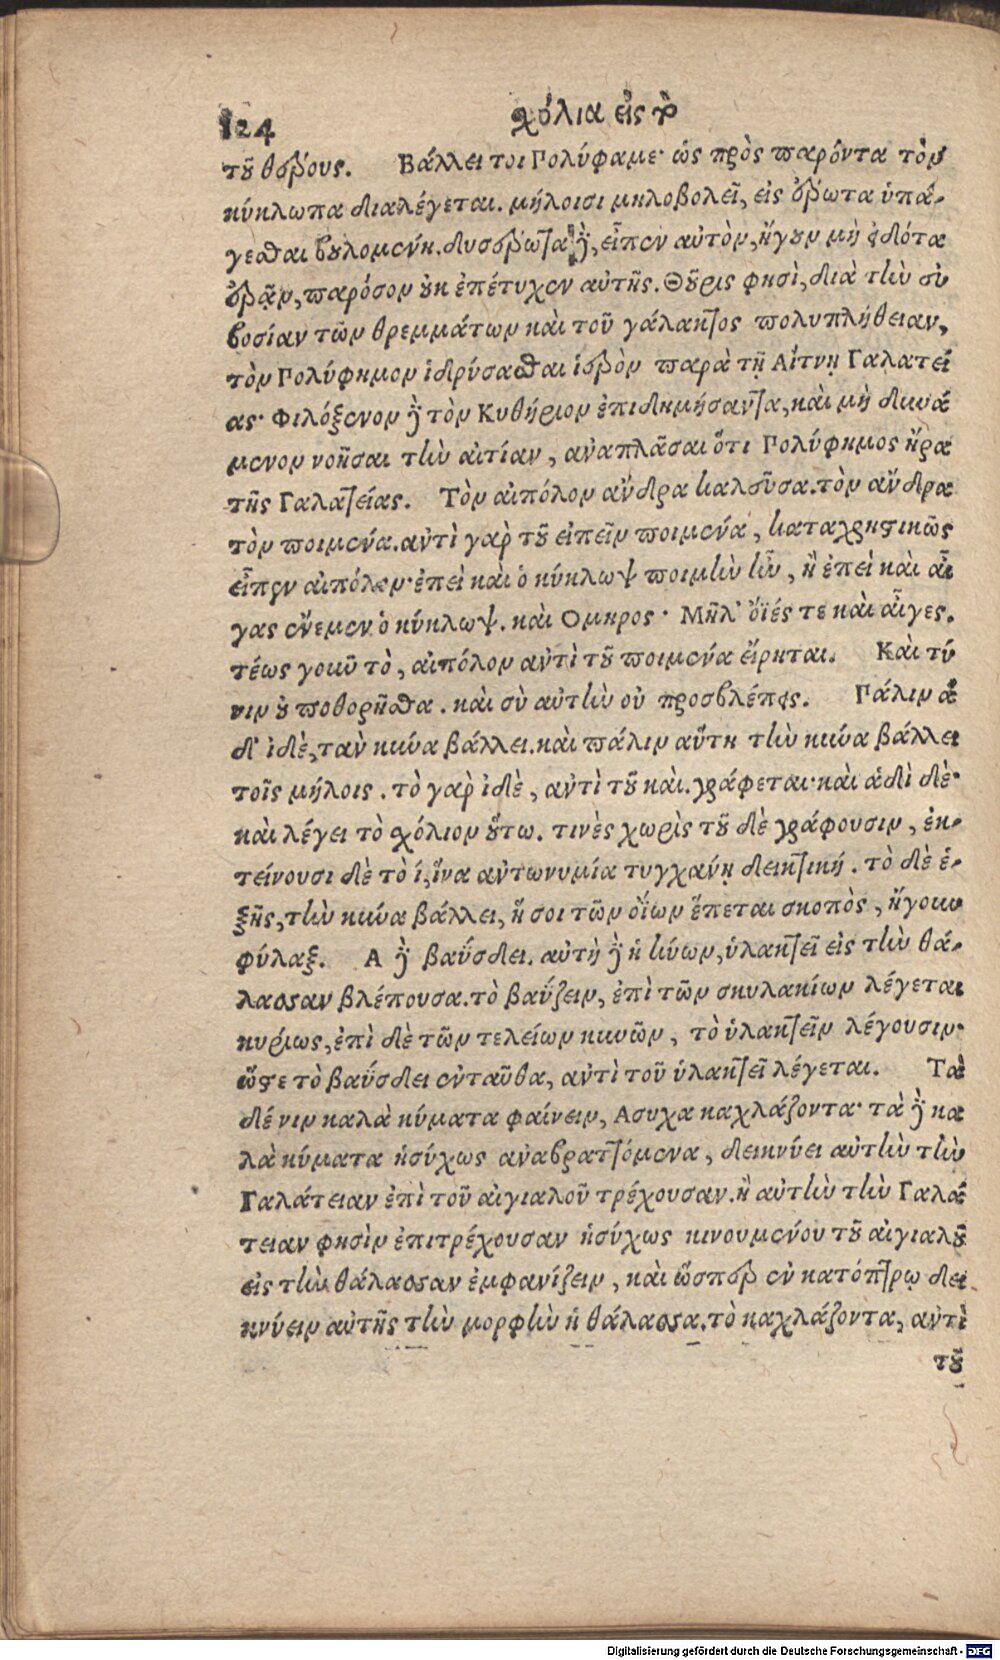 124 χόλια εἰς τὸ
τοῦ θέρους. Βάλλει τοι Πολύφαμε· ὡς πρὸς παρόντα τὸν
κύκλωπα διαλέγεται. μήλοισι μηλοβολεῖ, εἰς ἔρωτα ὑπά-
γεσθαι βουλομένη. δυσέρωτα δὲ, εἶπεν αὐτὸν, ἤγουν μὴ εἰδότα
ἐρᾷν, παρόσον οὐκ ἐπέτυχεν αὐτῆς. Θοῦρις φησὶ, διὰ τὴν εὐ
βοσίαν τῶν θρεμμάτων καὶ τοῦ γάλακτος πολυπλήθειαν,
τὸν Πολύφημον ἱδρύσασθαι ἱερὸν παρὰ τῇ Αἴτνῃ Γαλατεί
ας· Φιλόξενον δὲ τὸν Κυθήριον ἐπιδημήσαντα, καὶ μὴ δυνά
μενον νοῆσαι τὴν αἰτίαν, ἀναπλᾶσαι ὅτι Πολύφημος ἤρα
τῆς Γαλατείας. Τὸν αἰπόλον ἄνδρα καλεῦσα. τὸν ἄνδρα
τὸν ποιμένα. ἀντὶ γαρ τοῦ εἰπεῖν ποιμένα, καταχρηστικῶς
εἶπεν αἰπόλον· ἐπεὶ καὶ ὁ κύκλωψ ποιμὴν ἦν, ἢ ἐπεὶ καὶ αἶ
γας ἔνεμεν ὁ κύκλωψ. καὶ Ομηρος· Μῆλ' ὄϊές τε καὶ αἶγες.
τέως γοῦν τὸ, αἰπόλον ἀντὶ τοῦ ποιμένα εἴρηται. Καὶ τύ
νιν οὐ ποθορῆσθα. καὶ σὺ αὐτὴν οὐ προσβλέπεις. Πάλιν ἅ
δ' ἰδὲ, τὰν κύνα βάλλει. καὶ πάλιν αὕτη τὴν κύνα βάλλει
τοῖς μήλοις. τὸ γαρ ἰδὲ, ἀντὶ τοῦ καὶ. γράφεται· καὶ ἁδὶ δὲ·
καὶ λέγει τὸ χόλιον οὕτω. τινὲς χωρὶς τοῦ δὲ γράφουσιν, ἐκ-
τείνουσι δὲ τὸ ί, ἵνα ἀντωνυμία τυγχάνῃ δεικτική. τὸ δὲ ἑ-
ξῆς, τὴν κύνα βάλλει, ἥ σοι τῶν οΐων ἕπεται σκοπὸς, ἤγουν
φύλαξ. Α δὲ βαΰσδει. αὐτὴ δὲ ἡ κύων, ὑλακτεῖ εἰς τὴν θά-
λασσαν βλέπουσα. τὸ βαΰζειν, ἐπὶ τῶν σκυλακίων λέγεται
κυρίως, ἐπὶ δὲ τῶν τελείων κυνῶν, τὸ ὑλακτεῖν λέγουσιν·
ὥστε τὸ βαΰσδει ἐνταῦθα, ἀντὶ τοῦ ὑλακτεῖ λέγεται. Τὰ
δέ νιν καλὰ κύματα φαίνειν, Ασυχα καχλάζοντα· τὰ δὲ κα
λὰ κύματα ἡσύχως ἀναβραττόμενα, δεικνύει αὐτὴν τὴν
Γαλάτειαν ἐπὶ τοῦ αἰγιαλοῦ τρέχουσαν. ἢ αὐτὴν τὴν Γαλά
τειαν φησὶν ἐπιτρέχουσαν ἡσύχως κινουμένου τοῦ αἰγιαλοῦ
εἰς τὴν θάλασσαν ἐμφανίζειν, καὶ ὥσπερ ἐν κατόπτρῳ δει
κνύειν αὐτῆς τὴν μορφὴν ἡ θάλασσα. τὸ καχλάζοντα, ἀντὶ
τοῦ
Digitalisierung gefördert durch die Deutsche Forschungsgemeinschaft - DFG